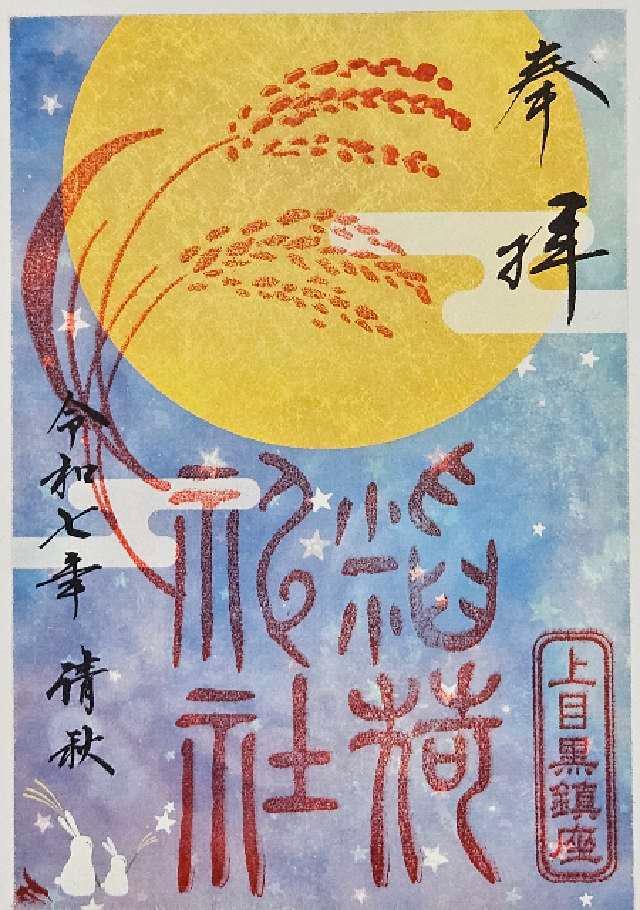 奉拝
上目黒鎮座
稲荷
神社
令和七年 清秋